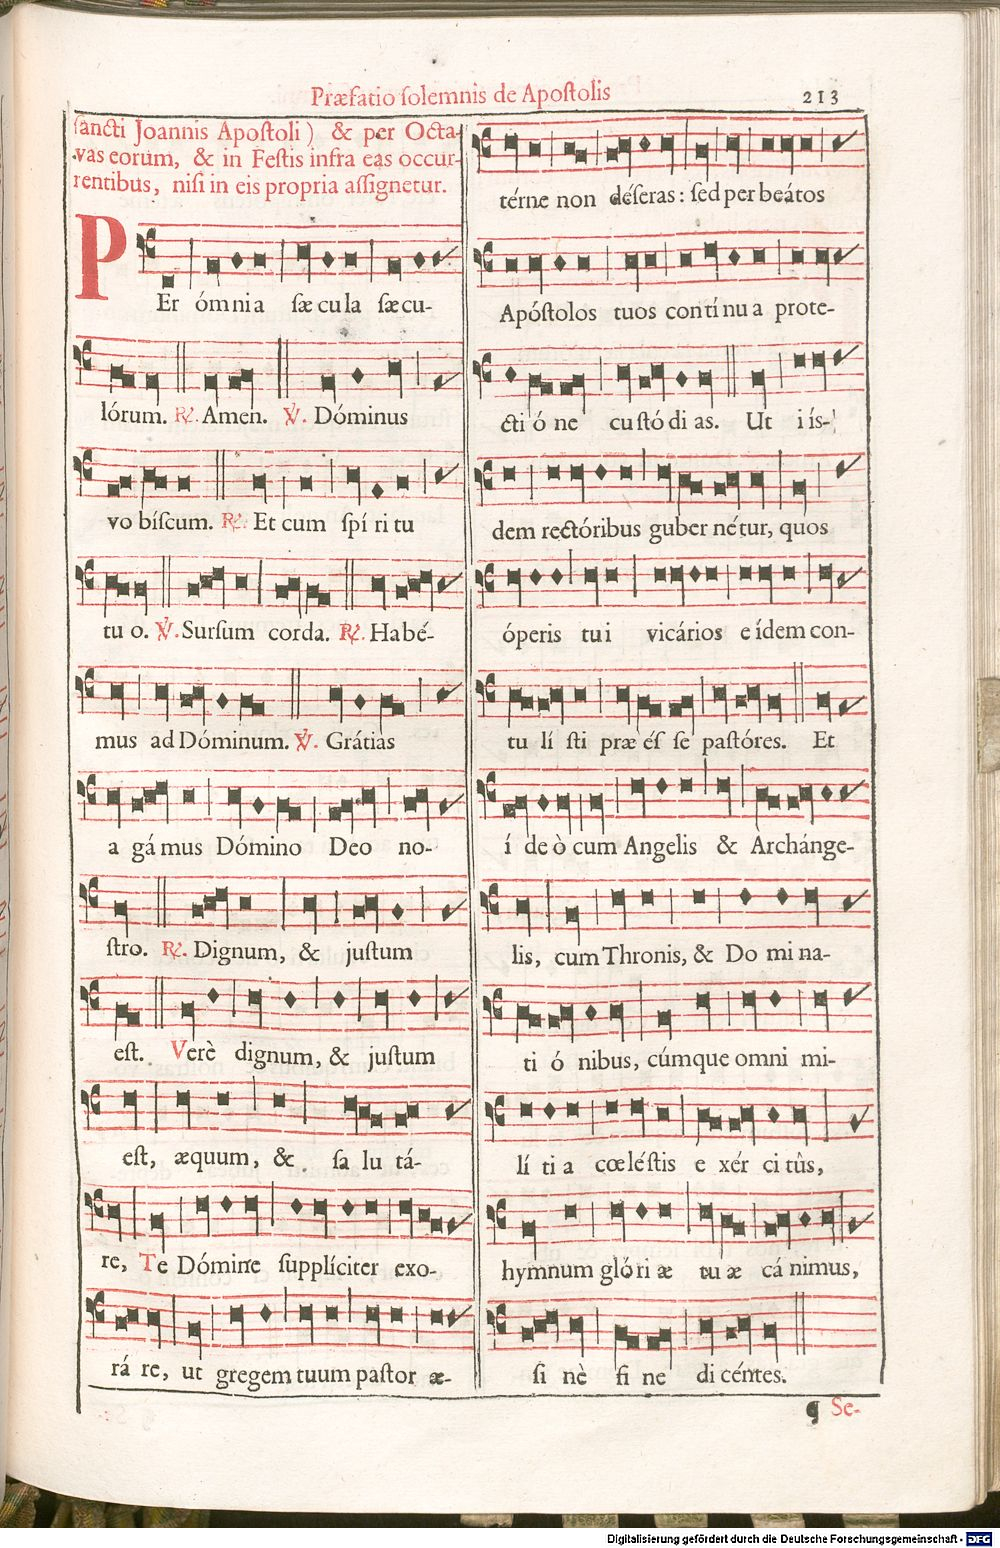 Præfatio ſolemnis de Apoſtolis
213
ſancti Joannis Apoſtoli) & per Octa-
vas eorum, & in Feſtis infra eas occur-
rentibus, niſi in eis propria aſſignetur.
PEr ómnia ſæcula ſæcu-
lórum. ℟. Amen. ℣. Dóminus
vo bíſcum. ℟. Et cum ſpí ri tu
tu o. ℣. Surſum corda. ℟. Habé-
mus ad Dóminum. ℣. Grátias
a gá mus Dómino Deo no-
ſtro. ℟. Dignum, & juſtum
eſt. Verè dignum, & juſtum
eſt, æquum, & ſa lu tá-
re, Te Dómine ſupplíciter exo-
rá re, ut gregem tuum paſtor æ-
térne non déſeras: ſed per beátos
Apóſtolos tuos contí nu a prote-
cti ó ne cu ſtó di as. Ut i íſ-
dem rectóribus guber né tur, quos
óperis tu i vicários e ídem con-
tu lí ſti præ éſ ſe paſtóres. Et
í de ò cum Angelis & Archánge-
lis, cum Thronis, & Do mi na-
ti ó nibus, cúmque omni mi-
lí ti a cœléſtis e xér ci tûs,
hymnum gló ri æ tu æ cá nimus,
ſi nè fi ne di céntes.
¶ Se-
Digitalisierung gefördert durch die Deutsche Forschungsgemeinschaft - DFG